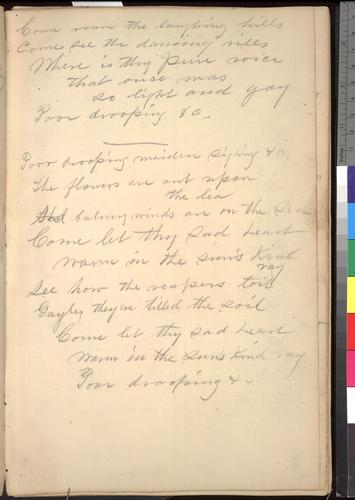 Come roam the laughing hills
Come see the dancing rills
Where is thy pure voice
that once was
so light and gay
Poor drooping &c.
Poor drooping maiden sighing &c.
The flowers are out upon
the lea
And balmy winds are on the sea
Come let thy sad heart
warm in the sun's kind
ray
See how the reapers toil
Gayley they've tilled the soil
Come let thy sad heart
warm in the sun's kind ray
Poor drooping &c